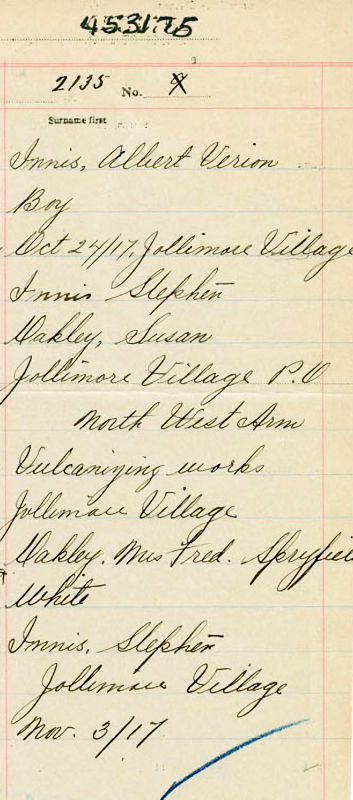 453175
2135 No. 9
Surname first
Innis, Albert Verion
Boy
Oct 24/17, Jollimore Village
Innis Stephen
Oakley, Susan
Jollimore Village P.O
North West Arm
Vulcanizing works
Jollimore Village
Oakley, Mrs Fred. Spryfiel
White
Innis, Stephen
Jollimore Village
Nov. 3/17